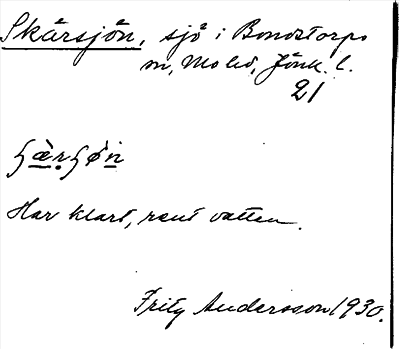 Skärsjön, sjö i Bondstorps
sn, Mo hd, Jönk. l.
21
Har klart, rent vatten.
Fritz Andersson 1930.